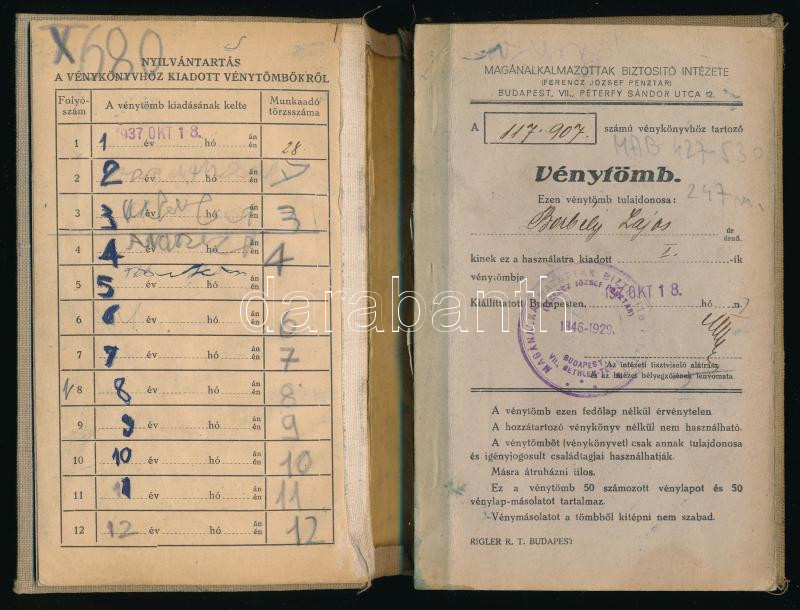 X 680
NYILVÁNTARTÁS
A VÉNYKÖNYVHÖZ KIADOTT VÉNYTÖMBÖKRŐL
Folyó-szám A vénytömb kiadásának kelte Munkaadó törzsszáma
1 1 1937 OKT 18. év hó án én 28
2 2 év hó án én
3 3 év hó án én 3
4 4 év hó án én 4
5 5 év hó án én
6 6 év hó án én 6
7 7 év hó án én 7
8 8 év hó án én 8
9 9 év hó án én 9
10 10 év hó án én 10
11 11 év hó án én 11
12 12 év hó án én 12
MAGÁNALKALMAZOTTAK BIZTOSITÓ INTÉZETE
(FERENCZ JÓZSEF PÉNZTÁR)
BUDAPEST, VII., PÉTERFY SÁNDOR UTCA 12.
A 117.907. számú vénykönyvhöz tartozó
MAB 427-530
Vénytömb.
247
Ezen vénytömb tulajdonosa:
Borbély Lajos úr
érnő.
kinek ez a használatra kiadott I. -ik
vénytömbje
Kiállittatott Budapesten, OKT 18. hó n
MAGÁNALKALMAZOTTAK BIZTOSITÓ
(FERENCZ JÓZSEF PÉNZTÁR)
1846-1929.
BUDAPEST,
VII. BETHLEN
Az intézeti tisztviselő aláírása
és az Intézet bélyegzőjének lenyomata.
A vénytömb ezen fedőlap nélkül érvénytelen
A hozzátartozó vénykönyv nélkül nem használható.
A vénytömböt (vénykönyvet) csak annak tulajdonosa
és igényjogosult családtagjai használhatják.
Másra átruházni tilos.
Ez a vénytömb 50 számozott vénylapot és 50
vénylap-másolatot tartalmaz.
Vénymásolatot a tömbből kitépni nem szabad.
RIGLER R. T. BUDAPEST
darabanth